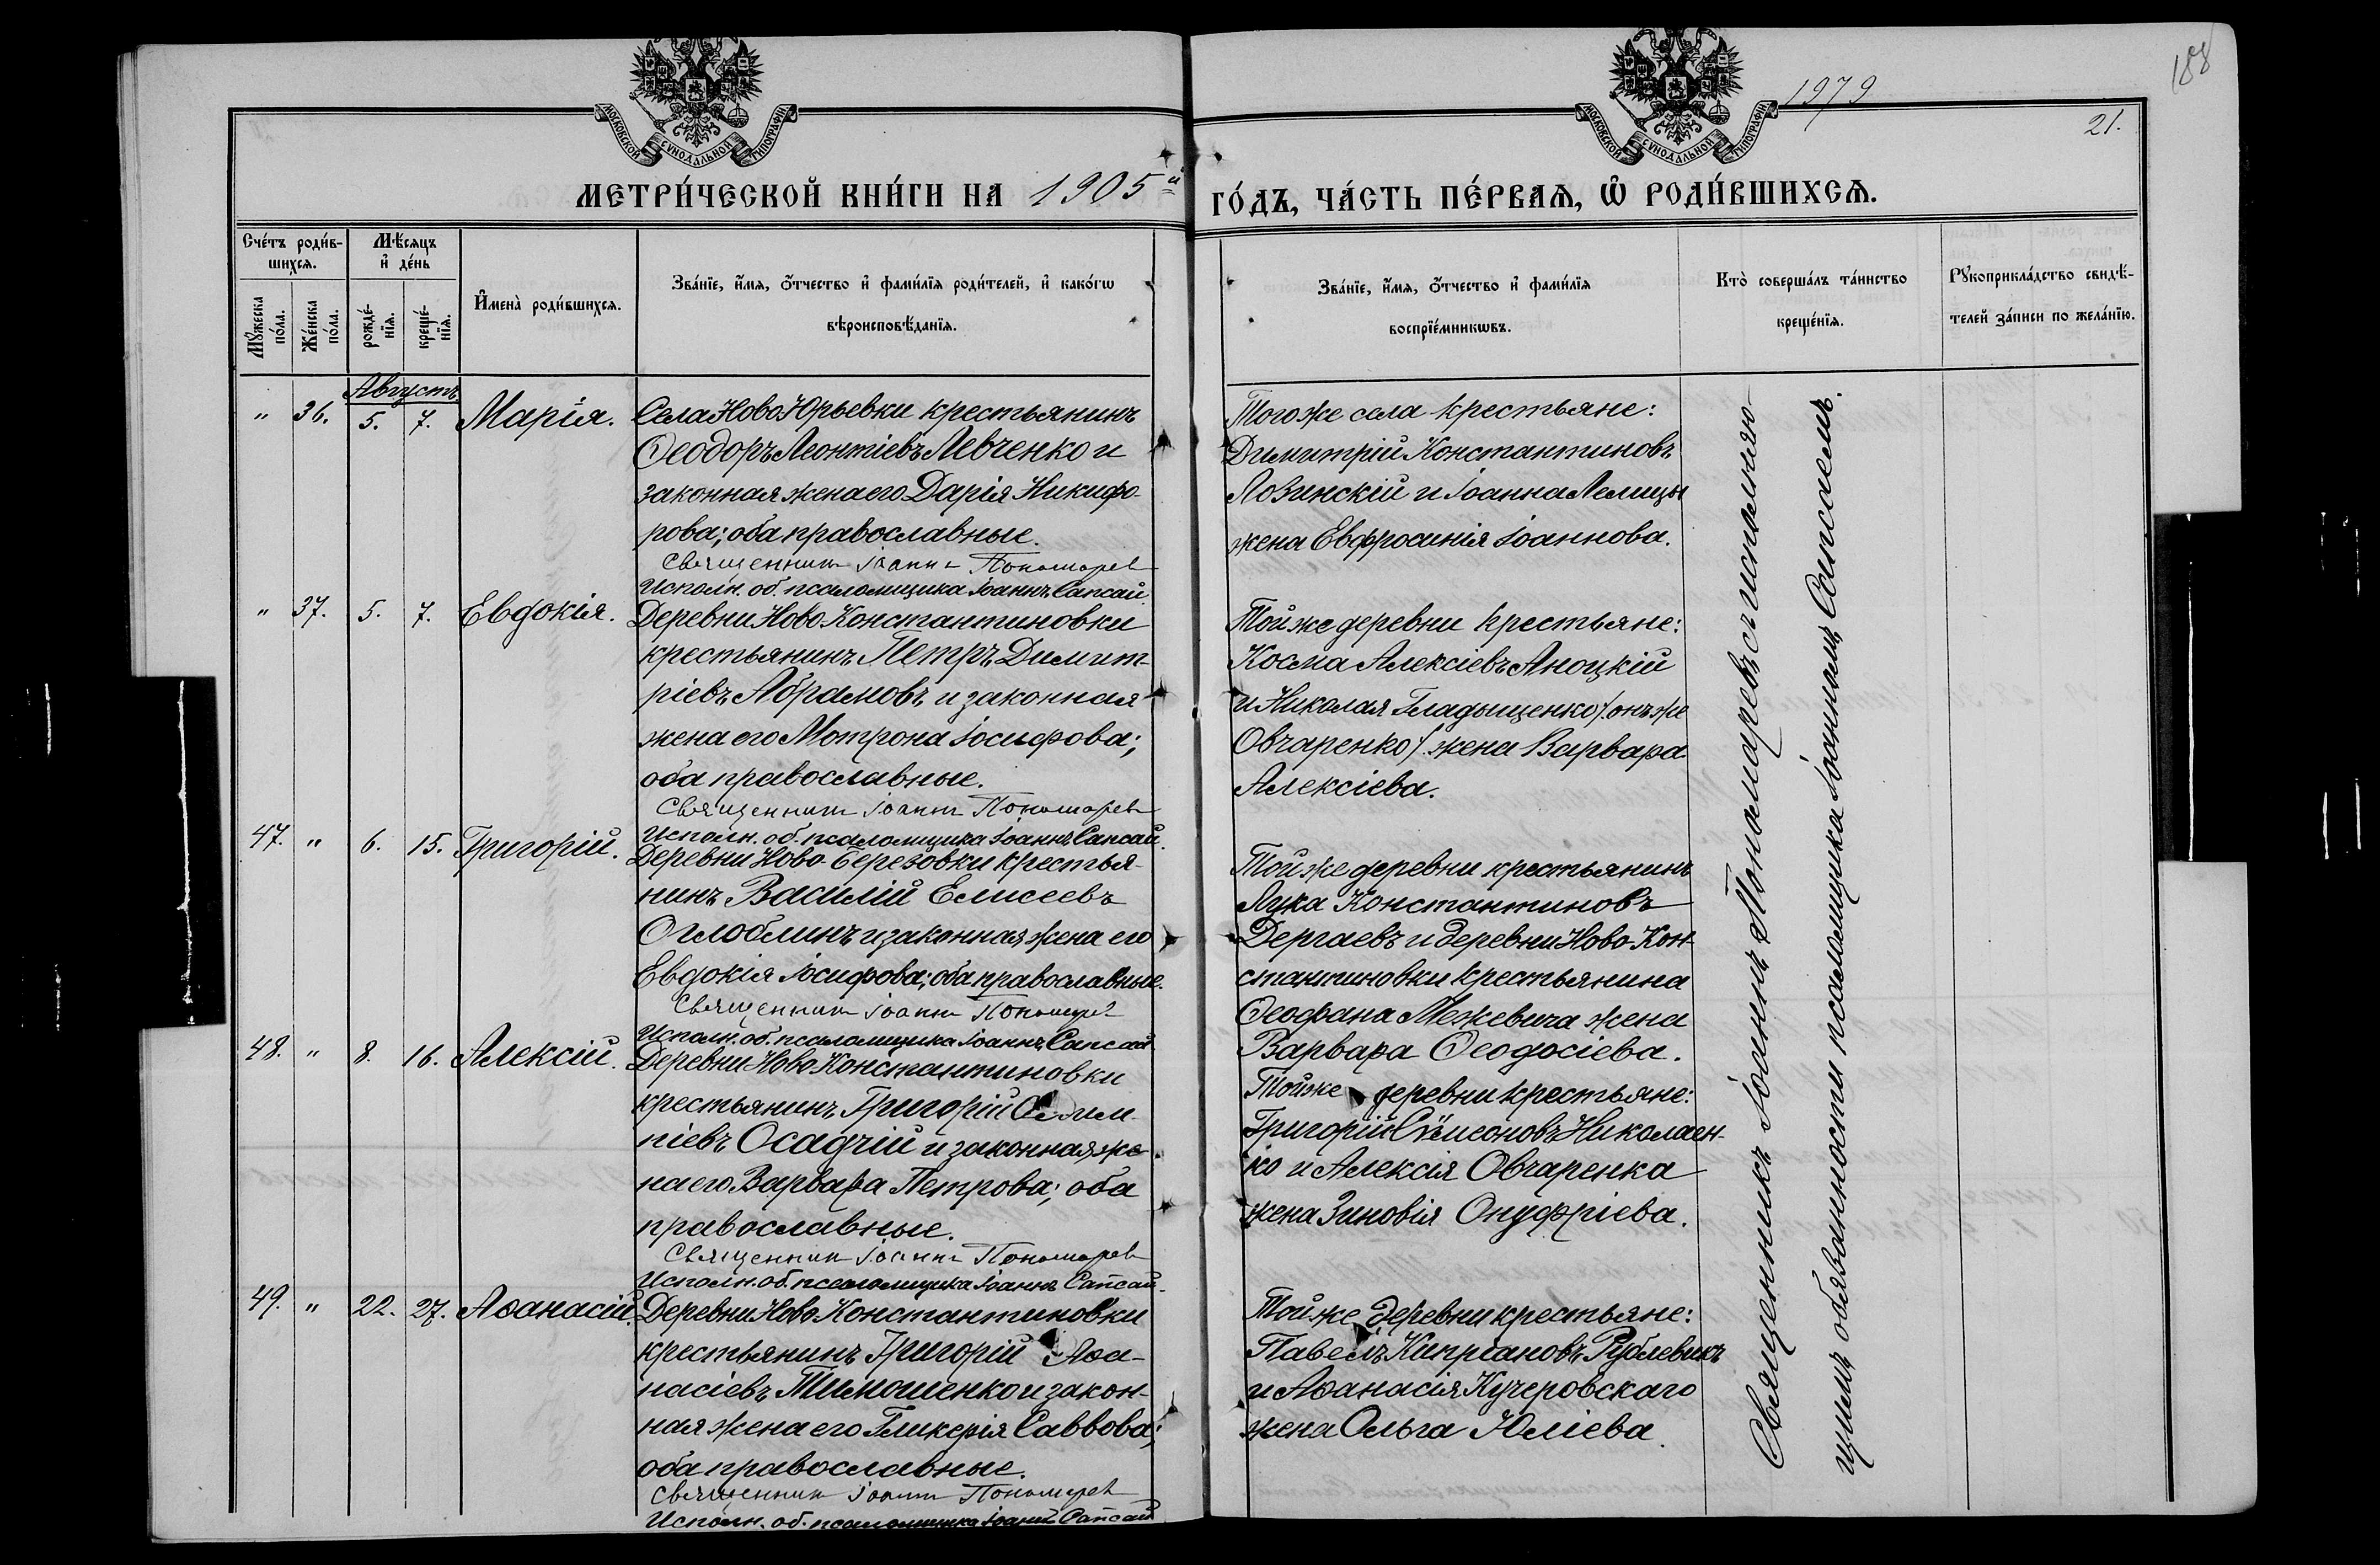 188
1979
21.
МОСКОВСКОЙ СѴНОДАЛЬНОЙ ТИПОГРАФІИ
МОСКОВСКОЙ СѴНОДАЛЬНОЙ ТИПОГРАФІИ
МЕТРИ́ЧЕСКОЙ КНИ́ГИ НА 1905й ГО́ДЪ, ЧА́СТЬ ПЕ́РВАѦ, Ѽ РОДИ́ВШИХСѦ.
Сче́тъ роди́в-
шихсѧ.
Мѣ́сѧцъ
и҆ де́нь
Мꙋ́жеска
по́ла.
Же́нска
по́ла.
рожде́-
нїѧ.
креще́-
нїѧ.
И҆мена̀ роди́вшихсѧ.
Зва́нїе, и҆́мѧ, ѻ҆́тчество и҆ фами́лїѧ роди́телей, и҆ како́гѡ
вѣроисповѣ́данїѧ.
Зва́нїе, и҆́мѧ, ѻ҆́тчество и҆ фами́лїѧ
воспрїе́мникѡвъ.
Кто̀ соверша́лъ та́инство
креще́нїѧ.
Рꙋкоприкла́дство свидѣ́-
телей за́писи по жела́нїю.
Августъ
" 36. 5. 7. Марія.
Села Ново Юрьевки крестьянинъ
Ѳеодоръ Леонтіевъ Левченко и
законная жена его Дарія Никифо-
рова; оба православные.
Священникъ Іоаннъ Пономаревъ
Исполн. об. псаломщика Іоаннъ Сапсай.
Того же села крестьяне:
Димитрій Константиновъ
Лозинскій и Іоанна
жена Евфросинія Іоаннова.
" 37. 5. 7. Евдокія.
Деревни Ново Константиновки
крестьянинъ Петръ Димит-
ріевъ Абрамовъ и законная
жена его Мотрона Іосифова;
оба православные.
Священникъ Іоаннъ Пономаревъ
Исполн. об. псаломщика Іоаннъ Сапсай.
Той же деревни крестьяне:
Косма Алексіевъ
и Николая Гладыщенко /: онъ же
Овчаренко /: жена Варвара
Алексіева.
47. " 6. 15. Григорій.
Деревни Ново-Березовки крестья-
нинъ Василій Елисеевъ
Оглоблинъ и законная жена его
Евдокія Іосифова; оба православные.
Священникъ Іоаннъ Пономаревъ
Исполн. об. псаломщика Іоаннъ Сапсай.
Той же деревни крестьянинъ
Лука Константиновъ
Дергаевъ и деревни Ново-Кон-
стантиновки крестьянина
Ѳеофана Межевича жена
Варвара Ѳеодосіева.
48. " 8. 16. Алексій.
Деревни Ново Константиновки
крестьянинъ Григорій
піевъ Осадчій и законная же-
на его Варвара Петрова; оба
православные.
Священникъ Іоаннъ Пономаревъ
Исполн. об. псаломщика Іоаннъ Сапсай.
Той же деревни крестьяне:
Григорій Сѵмеоновъ Николаен-
ко и Алексія Овчаренка
жена Зиновія Онуфріева.
49. " 22. 27. Аѳанасій.
Деревни Ново Константиновки
крестьянинъ Григорій Аѳа-
насіевъ Тимошенко и закон-
ная жена его Гликерія Саввова;
оба православные.
Священникъ Іоаннъ Пономаревъ
Исполн. об. псаломщика Іоаннъ Сапсай
Той же деревни крестьяне:
Павелъ Кипріановъ Рублевикъ
и Аѳанасія Кучеровскаго
жена Ольга Юліева.
Священникъ Іоаннъ Пономаревъ съ исполняю-
щимъ обязанности псаломщика Іоанномъ Сапсаемъ.